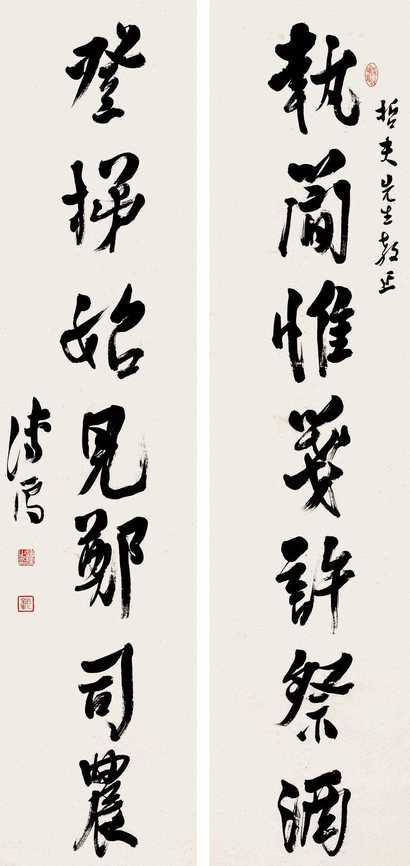 哲夫先生教正
執簡惟箋許祭酒
登梯始見鄭司農